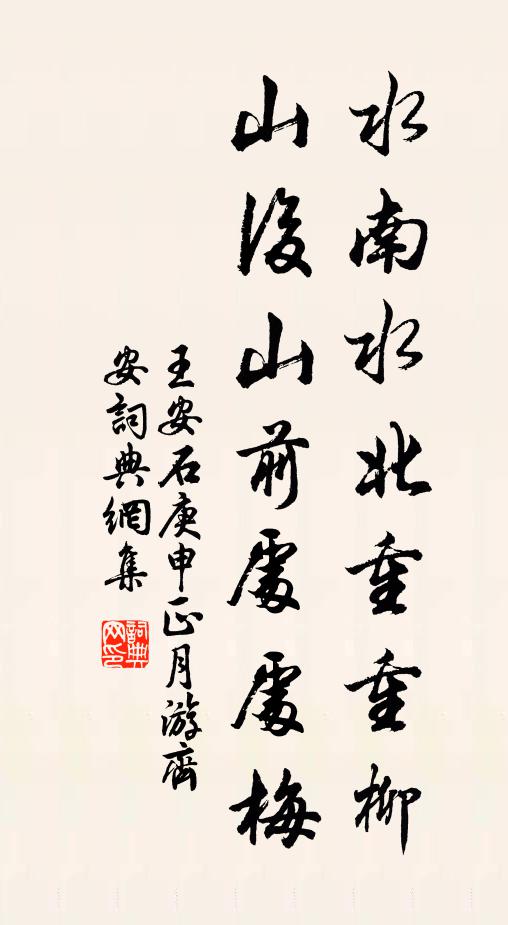 水南水北重重柳
山後山前處處梅
王安石庚申正月游齊
安詞典網集
詞典
网印